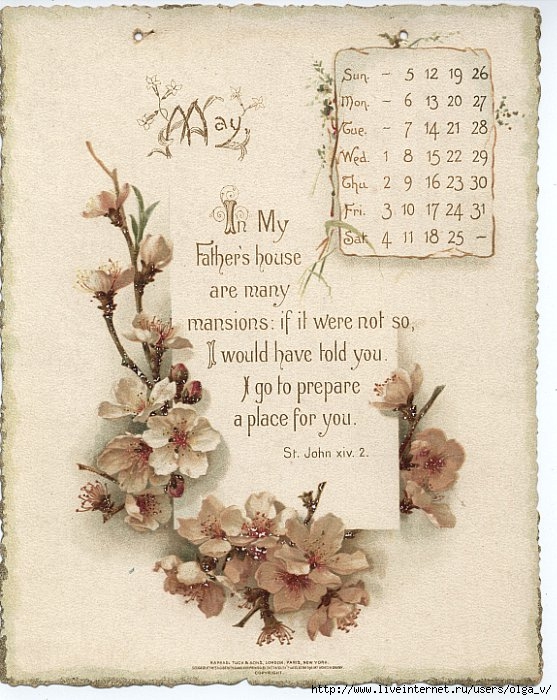 May
Sun. – 5 12 19 26
Mon. – 6 13 20 27
Tue. – 7 14 21 28
Wed. 1 8 15 22 29
Thu. 2 9 16 23 30
Fri. 3 10 17 24 31
Sat. 4 11 18 25 –
In My
Father's house
are many
mansions: if it were not so,
I would have told you.
I go to prepare
a place for you.
St. John xiv. 2.
RAPHAEL TUCK & SONS, LONDON, PARIS, NEW YORK.
COPYRIGHT.
http://www.liveinternet.ru/users/olga_v/